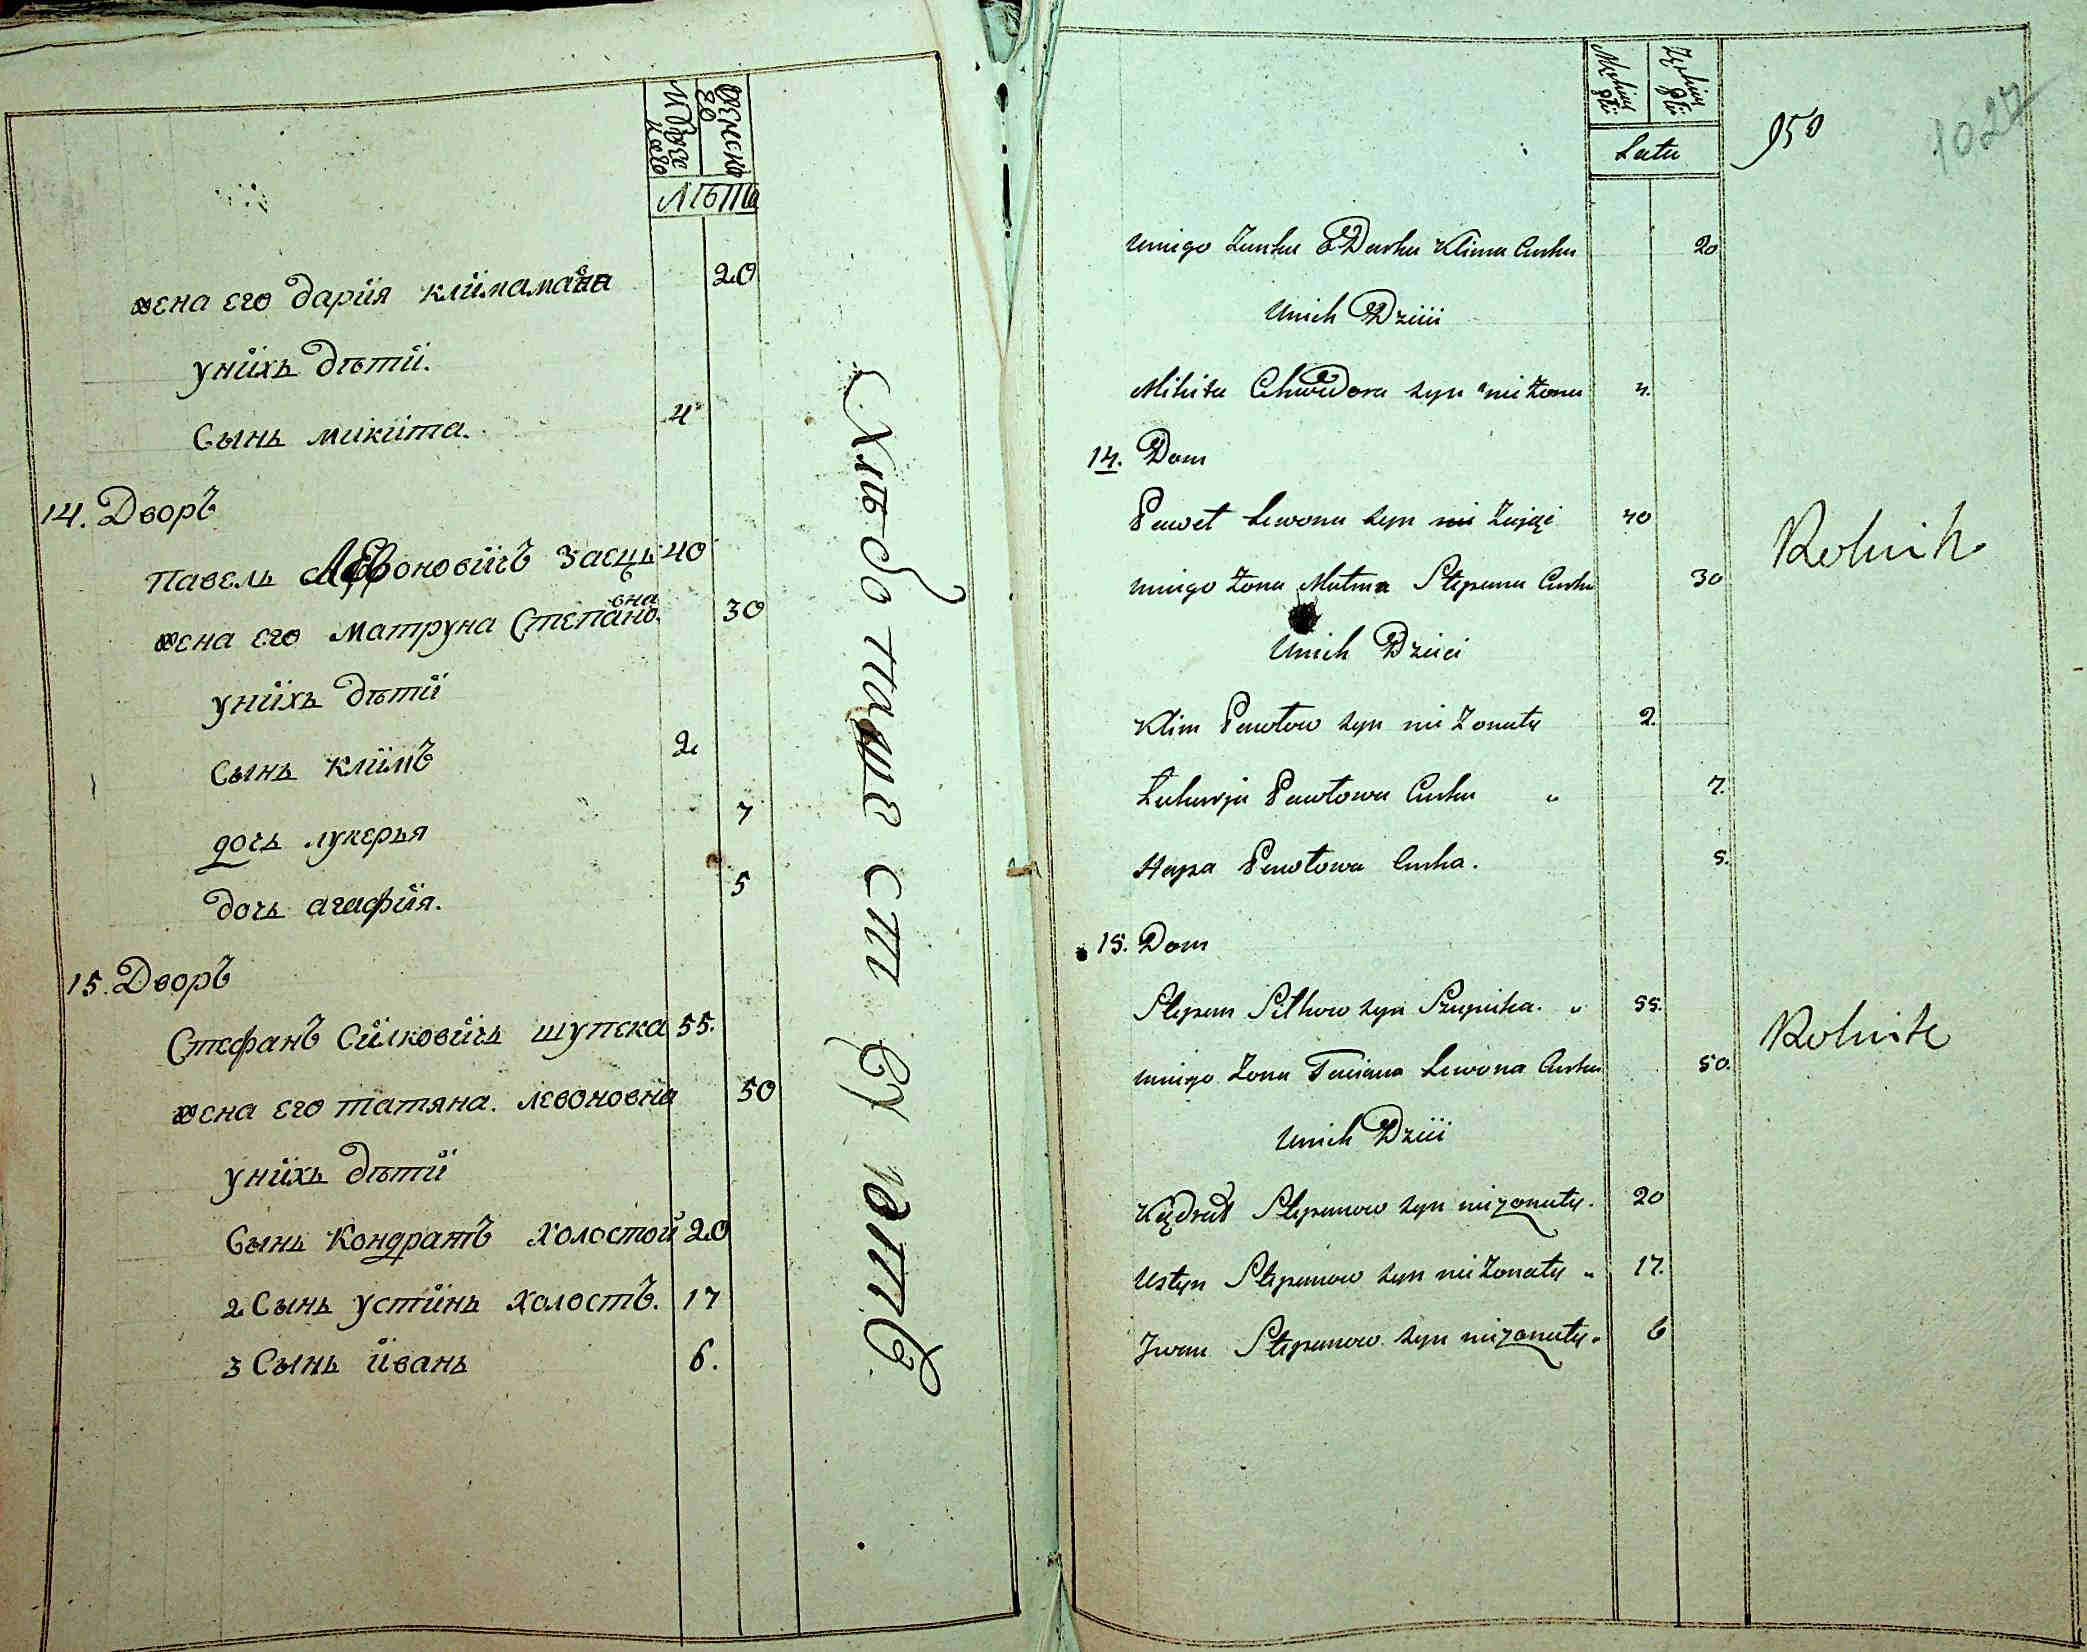 Мужескаго
Женскаго
Лѣта
жена его дария климамавна 20
у нихъ дѣти.
Сынъ микита. 4
14. Дворъ
павелъ Левоновичъ заецъ 40
жена его матруна Степановна 30
у нихъ дѣти
сынъ климъ 2
дочь лукерья 7
дочь агафия. 5
15. Дворъ
Стефанъ Силковичъ шупека 55.
жена его татяна. левоновна 50
у нихъ дѣти
Сынъ Кондратъ холостой 20
2 Сынъ устинъ холостъ. 17
3 Сынъ иванъ 6.
Хлѣбопашествуютъ
Męskiej Płci
Żeńskiej Płci
Latu
950
1027
Uniego Zonka Darka Klima Curka 20
Unich Dzieci
Mikita Chwiedora syn nie żona 4.
14. Dom
Paweł Lewona syn Zając 40
Uniego Żona Matruna Stepana Curka 30
Rolnik
Unich Dzieci
Klim Pawłow syn nie Żonaty 2.
Łukierja Pawłowa Curka " 7.
Hapa Pawłowa Curka. 5.
15. Dom
Stepan Siłkow syn Szupieka. " 55.
Rolnik
Uniego Żona Taciana Lewona Curka 50.
Unich Dzieci
Kądrat Stepanow syn nieżonaty. 20
Ustyn Stepanow syn nie Żonaty " 17.
Jwan Stepanow syn nieżonaty. 6